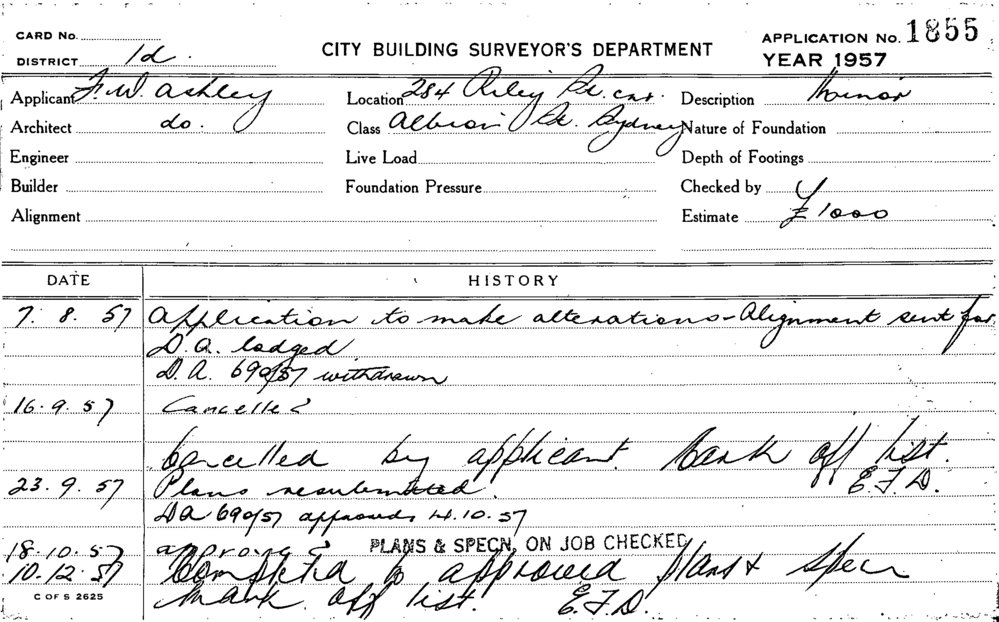 CARD No.
DISTRICT 1d.
CITY BUILDING SURVEYOR'S DEPARTMENT
APPLICATION No. 1855
YEAR 1957
Applicant F. W. Ashley
Location 284 Riley St. cnr.
Description Minor
Architect do.
Class Albion St. Sydney
Nature of Foundation
Engineer
Live Load
Depth of Footings
Builder
Foundation Pressure
Checked by
Alignment
Estimate £1000
DATE HISTORY
7. 8. 57 Application to make alterations - Alignment sent for.
D. A. lodged.
D. A. 690/57 withdrawn
16. 9. 57 Cancelled
Cancelled by applicant. Mark off list.
E.F.D.
23. 9. 57 Plans resubmitted.
DA 690/57 approved 14.10.57
18. 10. 57 approved PLANS & SPECN. ON JOB CHECKED
10. 12. 57 Completed to approved plans & specn
Mark off list. E.F.D.
C OF S 2625